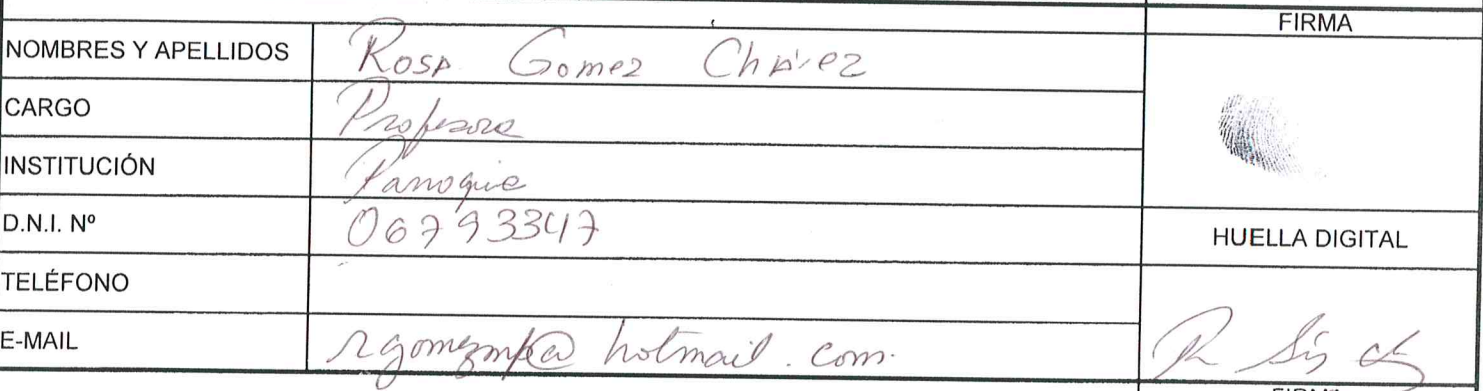 FIRMA
NOMBRES Y APELLIDOS Rosa Gomez Chávez
CARGO Profesora
INSTITUCIÓN Parroquia
D.N.I. Nº 06793347
HUELLA DIGITAL
TELÉFONO
E-MAIL @hotmail.com
FIRMA